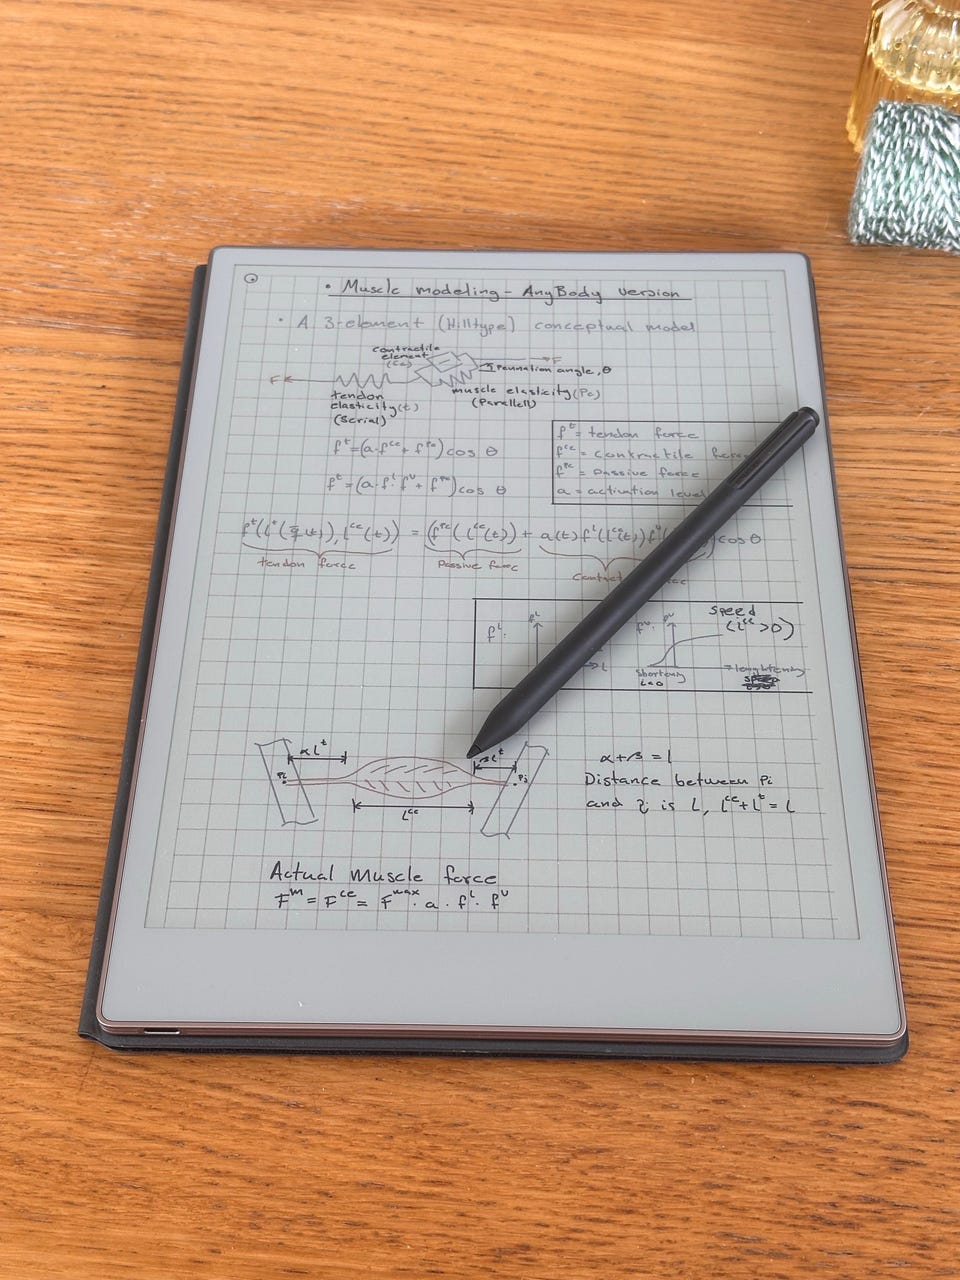 • Muscle modeling - AnyBody version
• A 3-element (Hilltype) conceptual model
contractile
element
(ce)
F
F
Pennation angle, θ
tendon
elasticity(t)
(Serial)
muscle elasticity (Pe)
(Parallell)
f^t = (a·f^ce + f^pe) cos θ
f^t = (a·f^l·f^v + f^pe) cos θ
f^t = tendon force
f^ce = contractile
f^pe = passive force
a = activation level
f^t(l^t(q(t)), l^ce(t)) = (f^pe(l^ce(t)) + a(t) f^l(l^ce(t)) f^v cos θ
tendon force
Passive force
f^l:
f^l
l
f^v:
f^v
speed
(l̇^ce > 0)
shortening
αl^t
βl^t
Pi
Pj
l^ce
α+β = 1
Distance between Pi
and is L, l^ce + l^t = L
Actual Muscle force
F^m = F^ce = F^max · a · f^l · f^v